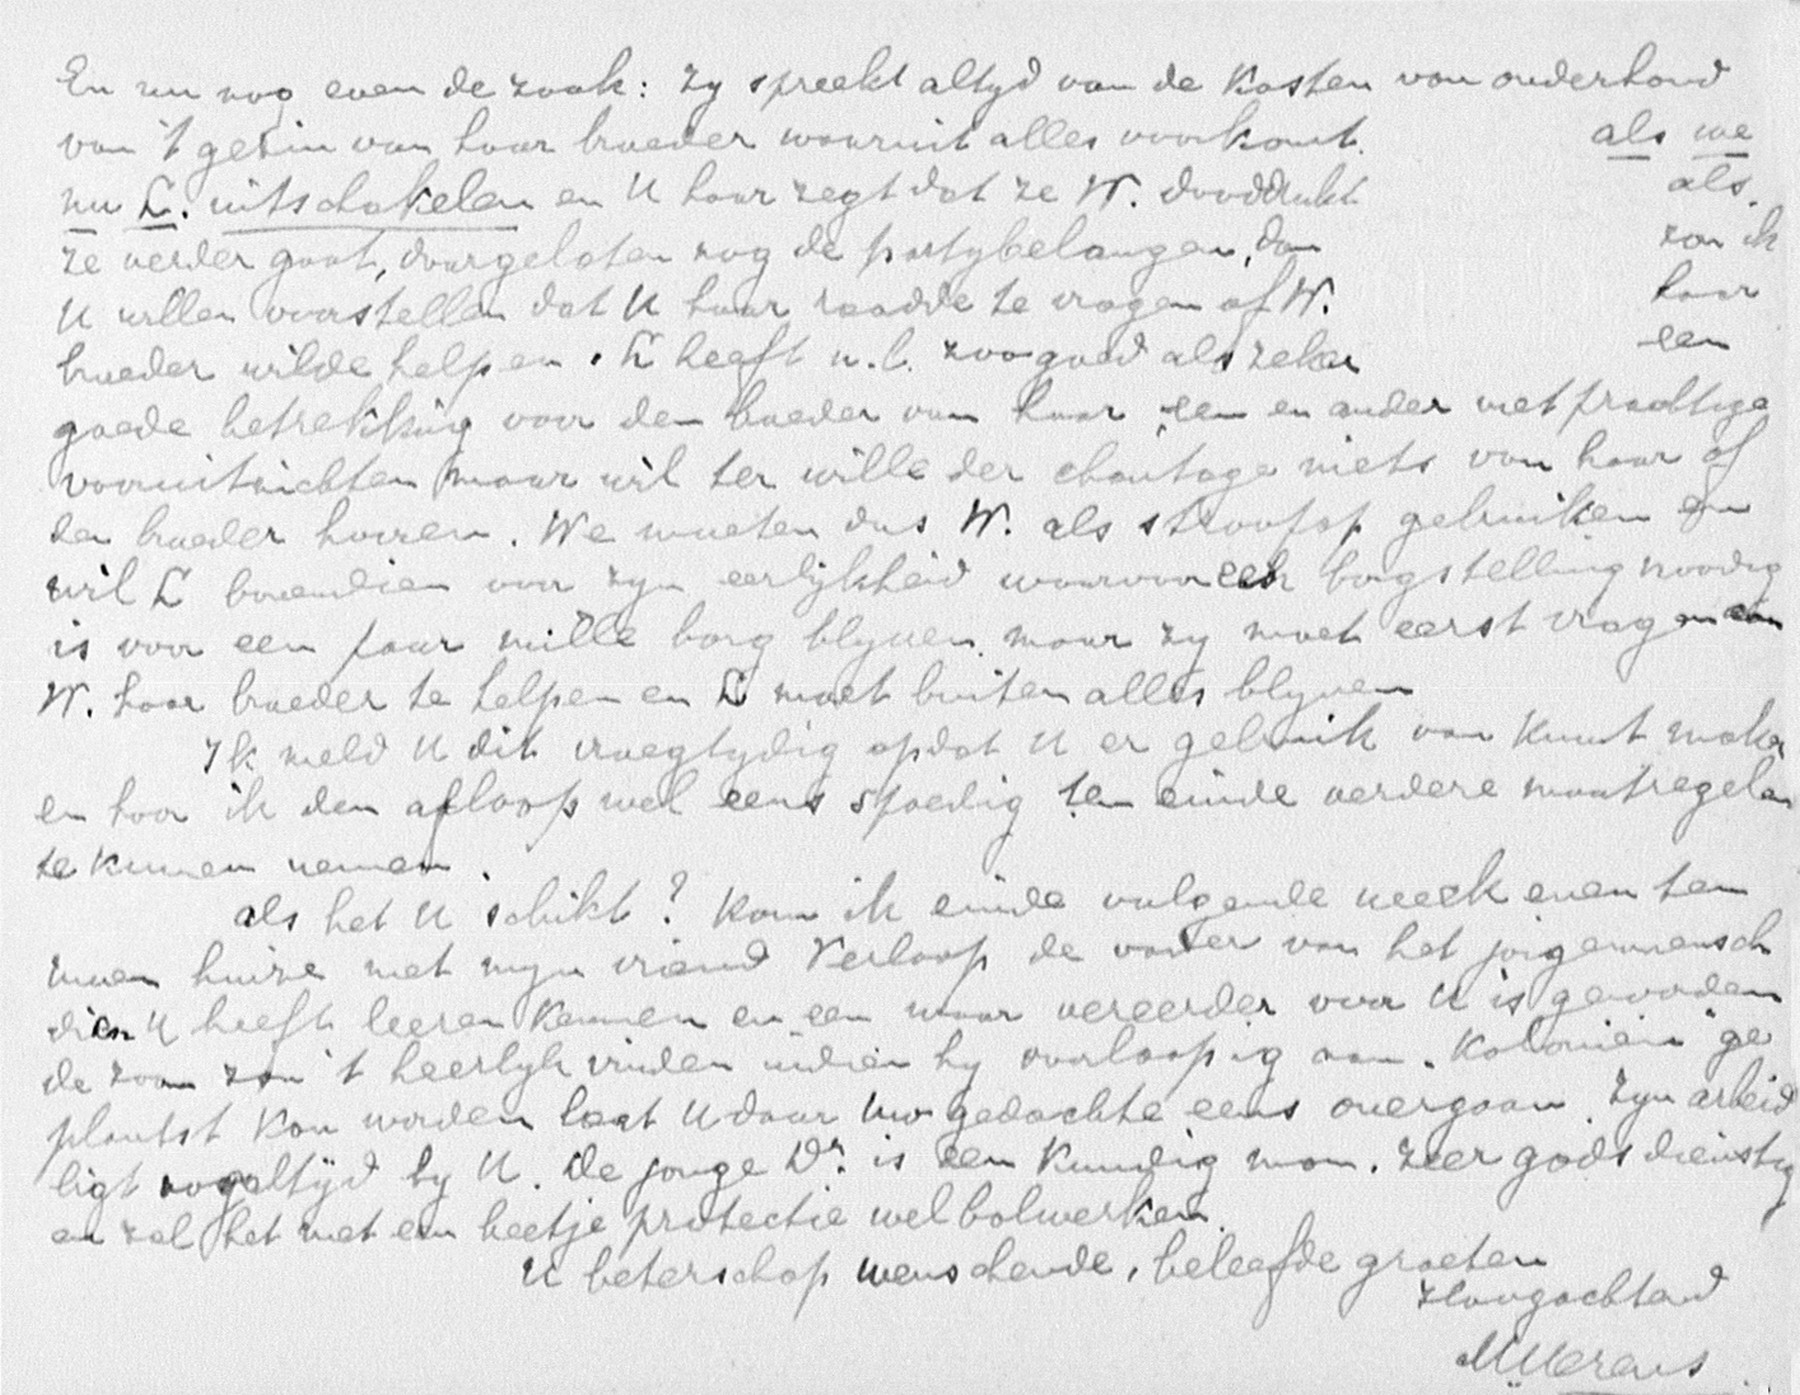 En nu nog even de zaak: zy spreekt altyd van de kosten van onderhoud
van 't gezin van haar broeder waaruit alles voorkomt. als we
nu L. uitschakelen en U haar zegt dat ze W. dooddrukt als
ze verder gaat, daargelaten nog de partybelangen, dan zou ik
U willen voorstellen dat U haar raadde te vragen of W. haar
broeder wilde helpen. L heeft n.l. zoo goed als zeker een
goede betrekking voor den broeder van haar, een en ander met prachtige
vooruitzichten maar wil ter wille der chantage niets van haar of
den broeder hooren. We moeten dus W. als stroopop gebruiken en
wil L bovendien voor zyn eerlijkheid waarvoor een borgstelling noodig
is voor een paar mille borg blyven. maar zy moet eerst vragen aan
W. haar broeder te helpen en L moet buiten alles blyven
Ik meld U dit vroegtydig opdat U er gebruik van kunt maken
en hoor ik den afloop wel eens spoedig ten einde verdere maatregelen
te kunnen nemen.
als het U schikt? kom ik einde volgende week even ten
uwen huize met myn vriend Verloop de vader van het jongemensch
dien U heeft leeren kennen en een waar vereerder voor U is geworden
de zoon zou 't heerlyk vinden indien hy voorloopig aan "Koloniën" ge
plaatst kon worden laat U daar uw gedachte eens overgaan. Zyn arbeid
ligt nog altijd by U. de jonge Dr. is een kundig man. zeer godsdienstig
en zal het met een beetje protectie wel bolwerken.
U beterschap wenschende, beleefde groeten
Hoogachtend